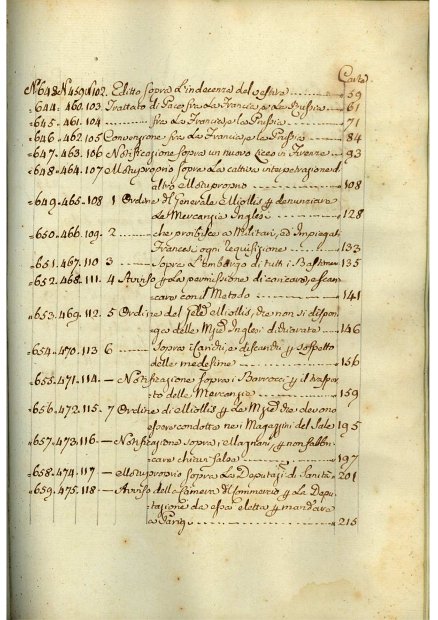 Carte
N.° 643 N. 459 102. Editto sopra l'indecenza del vestire 59
644. 460. 103. Trattato di Pace fra La Francia, e La Prussia 61
645. 461. 104. fra La Francia, e la Prussia 71
646. 462. 105 Convenzione fra La Francia, e la Prussia 84
647. 463. 106 Notificazione sopra un nuovo Liceo in Firenze 93
648. 464. 107 Motuproprio sopra La cattiva interpetrazione d'
altro Motuproprio 108
649. 465. 108 1 Ordine del Generale Miollis p denunciare
Le Mercanzie Inglesi 128
650. 466. 109. 2 che proibisce a Militari, ed Impiegati
Francesi ogni requisizione 133
651. 467. 110 3 Sopra L'embargo di tutti i Bastimenti 135
652. 468. 111. 4 Avviso p La permissione di caricare, e scari
care con Metodo 141
653. 469. 112. 5 Ordine del Miollis, che non si dispon
ga delle Inglesi dichiarate 146
654. 470. 113 6 Sopra p sospetto
delle medesime 156
655. 471. 114. Notificazione sopra i Barrocci p il traspor
to delle Mercanzie 159
656. 472. 115. 7 Ordine di Miollis p Le che devono
essere condotte nei Magazzini del Sale 195
657. 473. 116. Notificazione sopra i p non fabbri
care 197
658. 474. 117. Motuproprio sopra La Deputaz. di Sanità 201
659. 475. 118. Avviso della Camera di Commercio p La Depu
tazione da essa eletta p mandare
a Parigi 215